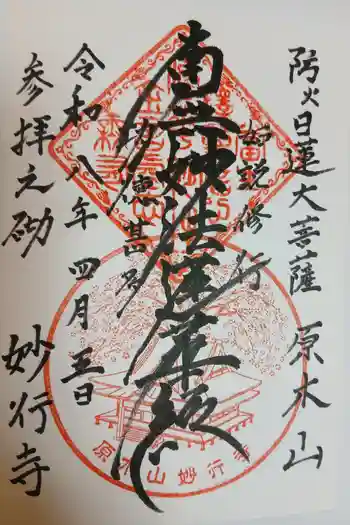 防火日蓮大菩薩 原木山
如説修行
南無妙法蓮華経
功徳甚多
令和八年四月五日
参拝之砌 妙行寺
原木山妙行寺